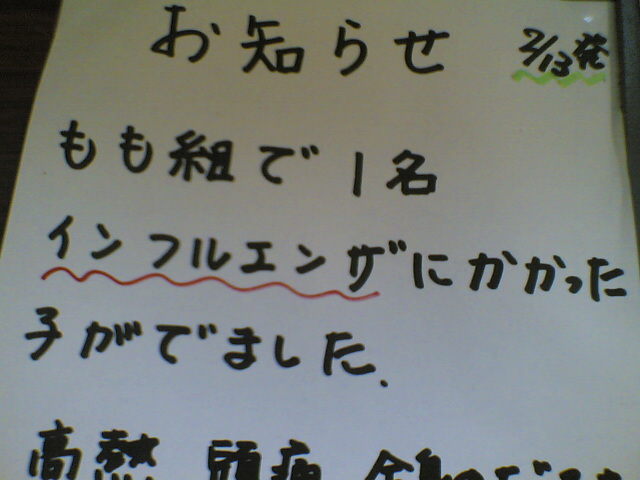 お知らせ 2/13発
もも組で1名
インフルエンザにかかった
子がでました.
高熱 頭痛 全身の